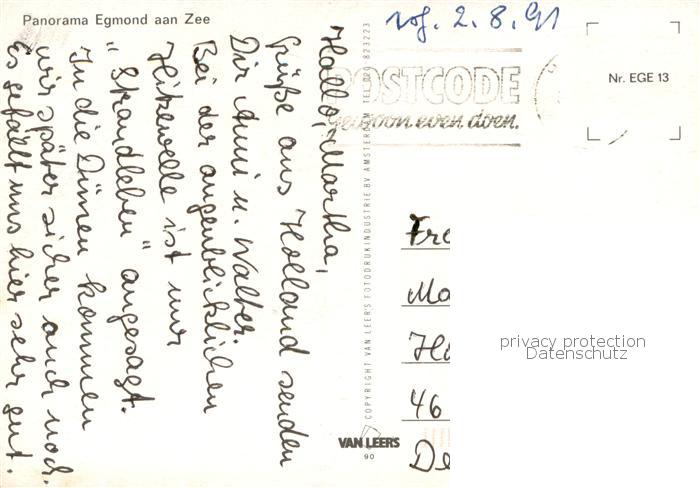 Panorama Egmond aan Zee
Hallo, Martha,
Grüße aus Holland senden
Dir Anni u. Walter.
Bei der augenblicklichen
Hitzewelle ist nur
"Strandleben" angesagt.
In die Dünen kommen
wir später sicher auch noch.
Es gefällt uns hier sehr gut.
2.8.91
POSTCODE
even doen.
Nr. EGE 13
COPYRIGHT VAN LEER'S FOTODRUKINDUSTRIE BV AMSTERDAM TEL. 020-823223
VAN LEERS
90
Fr
Ma
H
46
De
privacy protection
Datenschutz